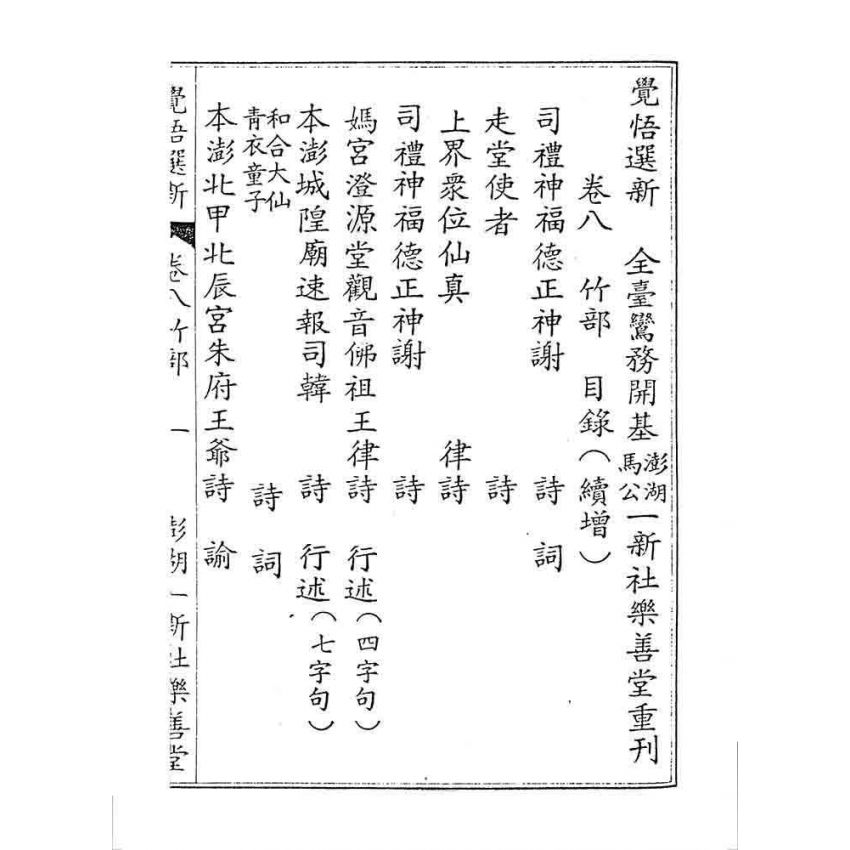 覺悟選新　全臺鸞務開基澎湖馬公一新社樂善堂重刊
卷八　竹部　目錄（續增）
司禮神福德正神謝　詩　詞
走堂使者　詩
上界衆位仙真　律詩
司禮神福德正神謝　詩
媽宮澄源堂觀音佛祖王律詩　行述（四字句）
本澎城隍廟速報司韓　詩　行述（七字句）
和合大仙
青衣童子　詩　詞
本澎北甲北辰宮朱府王爺詩　諭
覺悟選新　卷八竹部　一　澎湖一新社樂善堂